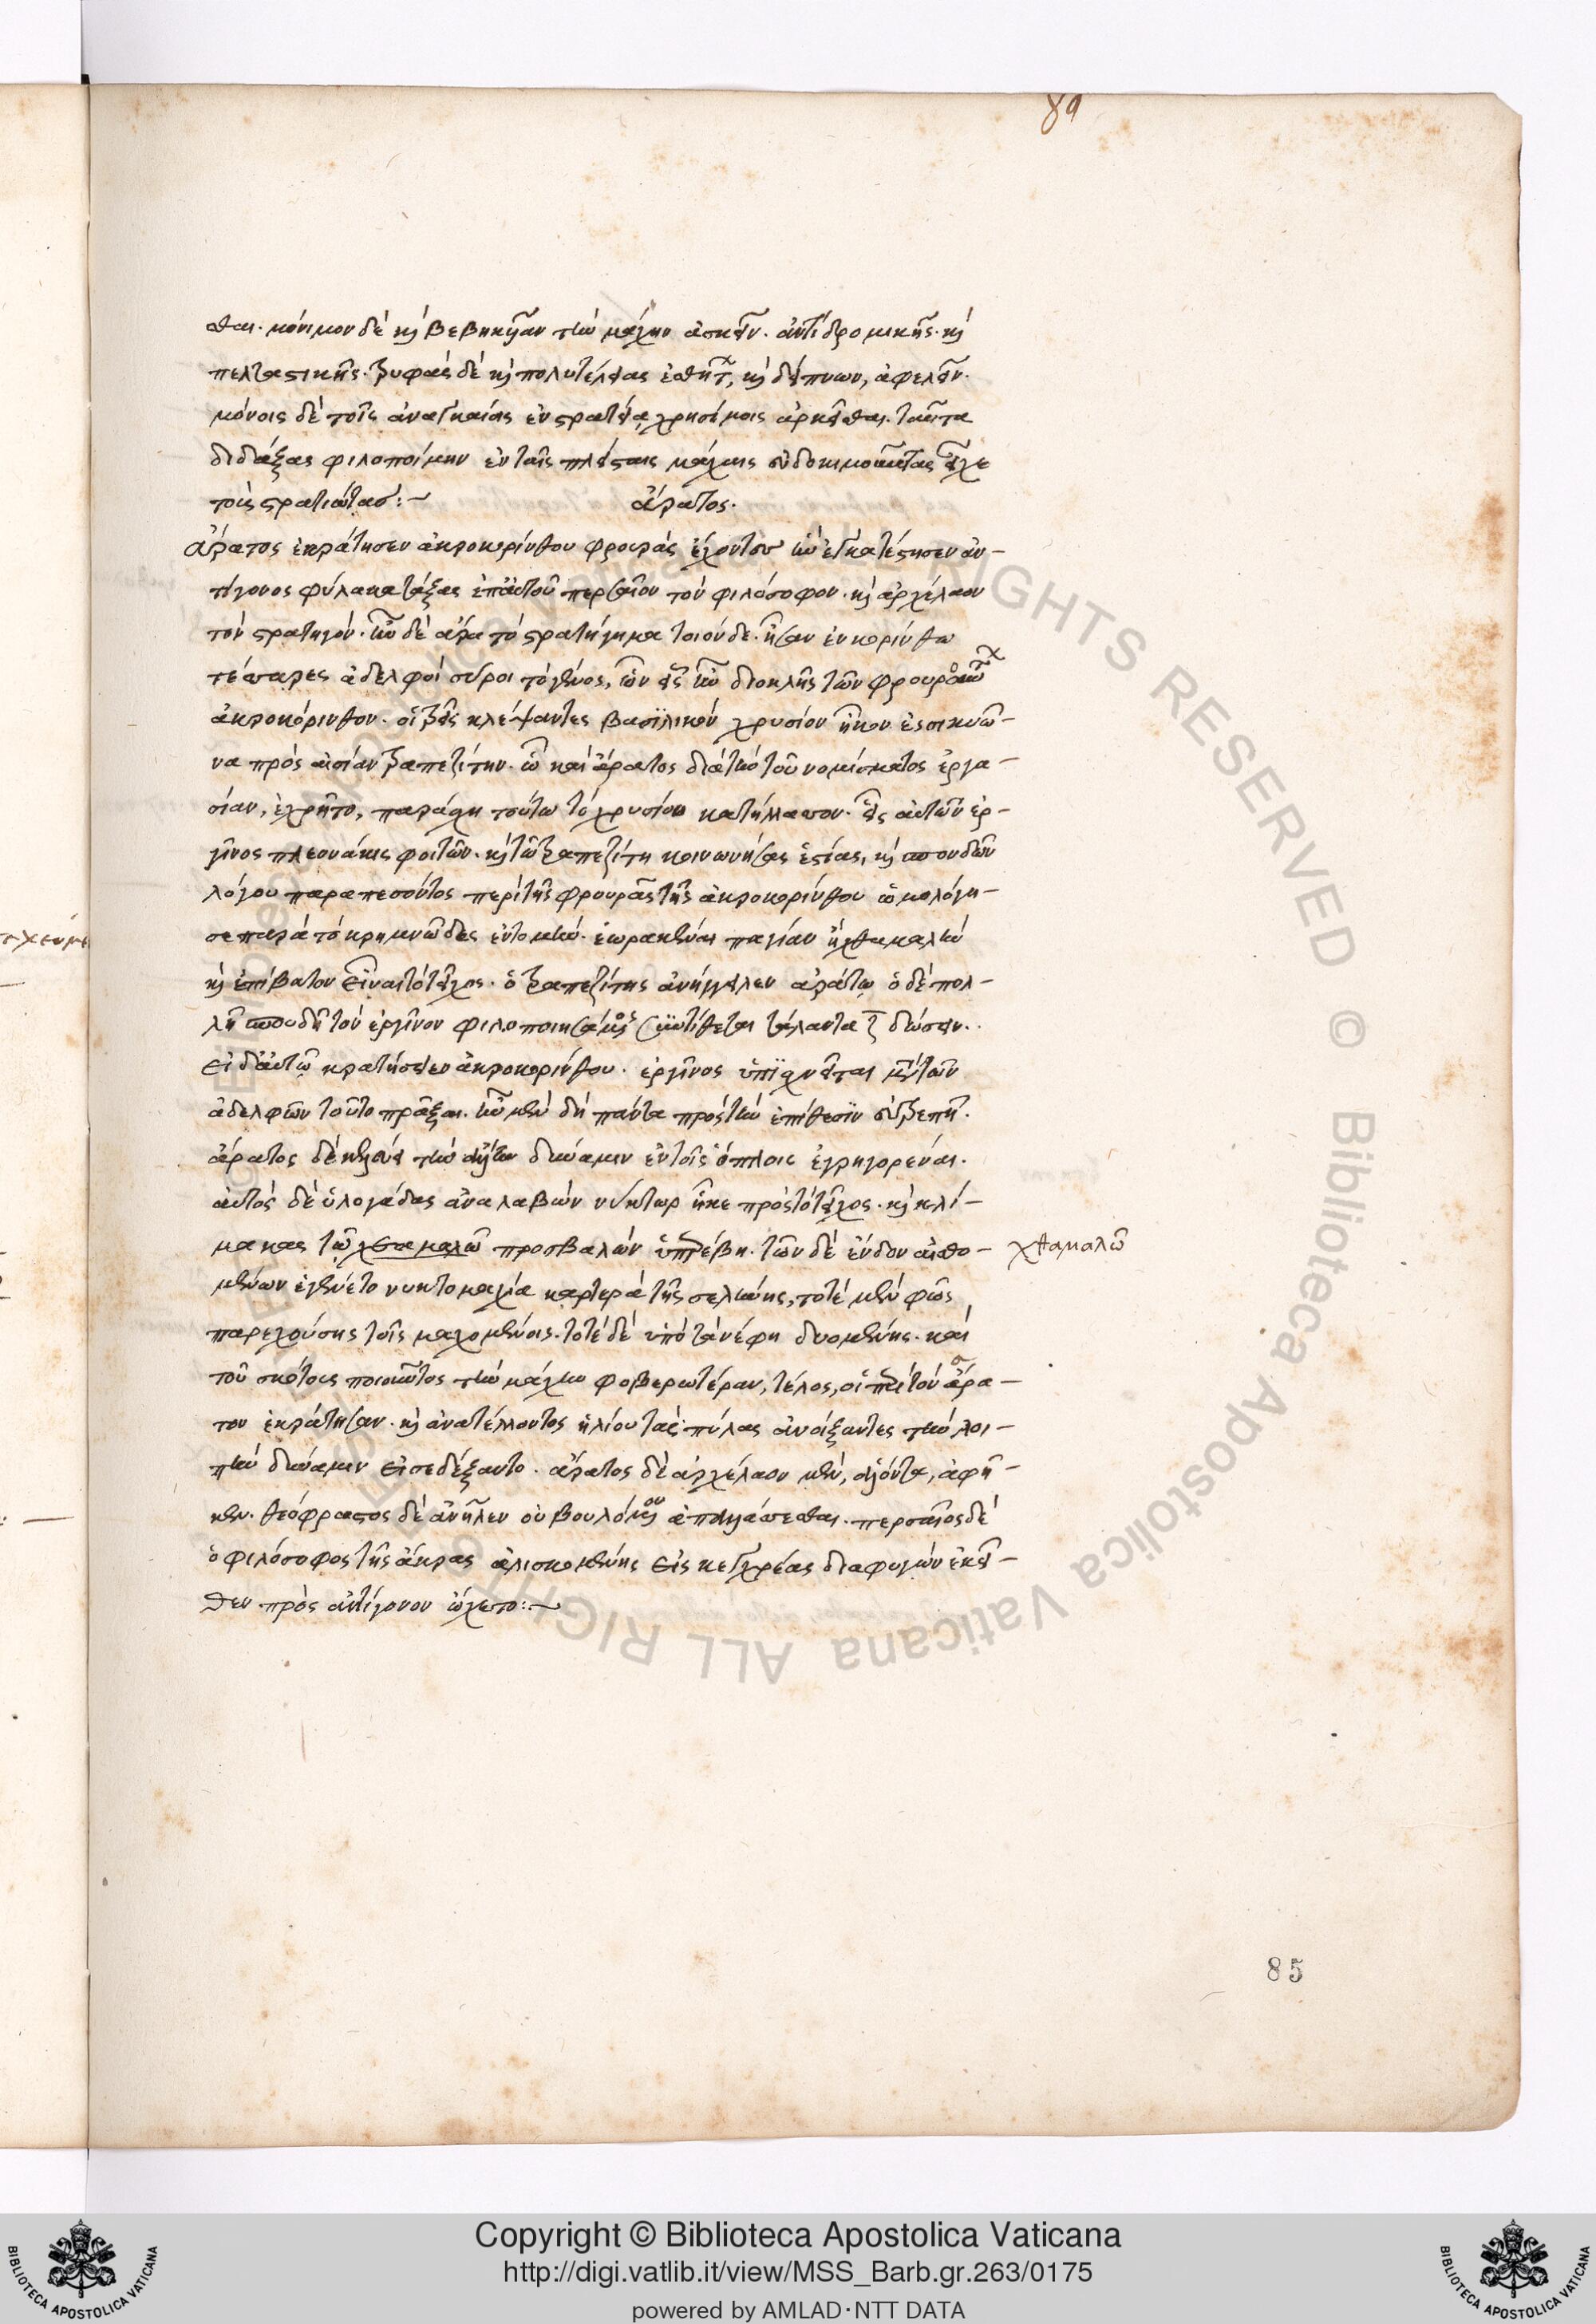 89
σθαι. μόνιμον δὲ κὶ βεβηκυῖαν τὴν μάχην ἀσκεῖν. ἀντὶ δρομικῆς. κὶ
πελταστικῆς. τρυφὰς δὲ κὶ πολυτέλειας ἐσθήτων, κὶ δείπνων, ἀφελεῖν.
μόνοις δὲ τοῖς ἀναγκαίοις ἐν στρατεία χρησίμοις ἀρκεῖσθαι. ταῦτα
διδάξας φιλοποίμην ἐν ταῖς πλείσταις μάχαις εὐδοκιμοῦντας εἶχε
τοὺς στρατιώτασ:~ ἄρατος.
ἄρατος ἐκράτησεν ἀκροκορίνθου φρουρὰς ἔχοντοσ ἣν ἐγκατέστησεν ἀν-
τίγονος φύλακα τάξας ἐπ' αὐτοῦ περσαῖον τὸν φιλόσοφον. κὶ ἀρχέλαον
τὸν στρατηγόν. ἦν δὲ ἄρα τὸ στρατήγημα τοιόνδε. ἦσαν ἐν κορίνθω
τέσσαρες ἀδελφοὶ σύροι τὸ γένος, ὧν εἷς ἦν διοκλῆς τῶν φρουρούντων
ἀκροκόρινθον. οἱ τρεῖς κλέψαντες βασϊλικὸν χρυσίον ἧκον ἐς σικυῶ-
να πρὸς αἰσίαν τραπεζίτην. ὧ καὶ ἄρατος διὰ τὴν τοῦ νομίσματος ἐργα-
σίαν, ἐχρῆτο, παρὰ δὴ τούτω τὸ χρυσίον κατήλλασσον. εἷς αὐτῶν ἐρ-
γῖνος πλεονάκις φοιτῶν. κὶ τῶ τραπεζίτη κοινωνήσας ἑστίας, κὶ σπονδῶν
λόγου παραπεσόντος περὶ τῆς φρουρᾶς τῆς ἀκροκορίνθου ὡμολόγη-
σε παρὰ τὸ κρημνῶδες ἐντομὴν. ἑωρακέναι παγίαν ἦ χθαμαλὴν
κὶ ἐπίβατον εἶναι τὸ τεῖχος. ὁ τραπεζίτης ἀνήγγειλεν ἀράτω ὁ δὲ πολ-
λῆ σπουδῆ τὸν ἐργῖνον φιλοποιησάμενος συντίθεται τάλαντα ζ δώσειν.
εἰ δ' αὐτῶ κρατήσειεν ἀκροκορίνθου. ἐργῖνος ὑπϊχνεῖται μετὰ τῶν
ἀδελφῶν τοῦτο πρᾶξαι. ἦν μὲν δὴ πάντα πρὸς τὴν ἐπίθεσϊν εὐτρεπῆ.
ἄρατος δὲ κελεύει τὴν δύναμιν ἐν τοῖς ὅπλοις ἐγρηγορέναι.
αὐτὸς δὲ ὑλογάδας ἀναλαβὼν νύκτωρ ἧκε πρὸς τὸ τεῖχος. κὶ κλί-
μακας τῶ χθαμαλῶ προσβαλὼν ὑπερέβη. τῶν δὲ ἔνδον αἰσθο- χθαμαλῶ
μένων ἐγένετο νυκτομαχία καρτερὰ τῆς σελήνης, τοτὲ μὲν φῶς
παρεχούσης τοῖς μαχομένοις. τοτὲ δὲ ὑπὸ τὰ νέφη δυομένης. καὶ
τοῦ σκότους ποιοῦντος τὴν μάχην φοβερωτέραν, τέλος, οἱ περὶ τὸν ἄρα-
τον ἐκράτησαν. κὶ ἀνατέλλοντος ἡλίου τὰς πύλας ἀνοίξαντες τὴν λοι-
πὴν δύναμιν εἰσεδέξαντο. ἄρατος δὲ ἀρχέλαον μὲν, ἁλόντα, ἀφῆ-
κεν. θεόφραστος δὲ ἀνῆλεν οὐ βουλόμενον ἀπαλλάσσεσθαι. περσαῖος δὲ
ὁ φιλόσοφος τῆς ἄκρας ἁλισκομένης εἰς κεγχρέας διαφυγὼν ἐκεῖ-
θεν πρὸς ἀντίγονον ὤχετο:~
85
Copyright © Biblioteca Apostolica Vaticana
http://digi.vatlib.it/view/MSS_Barb.gr.263/0175
powered by AMLAD·NTT DATA